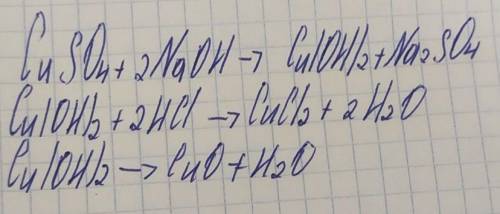 CuSO4 + 2NaOH → Cu(OH)2 + Na2SO4
Cu(OH)2 + 2HCl → CuCl2 + 2H2O
Cu(OH)2 → CuO + H2O